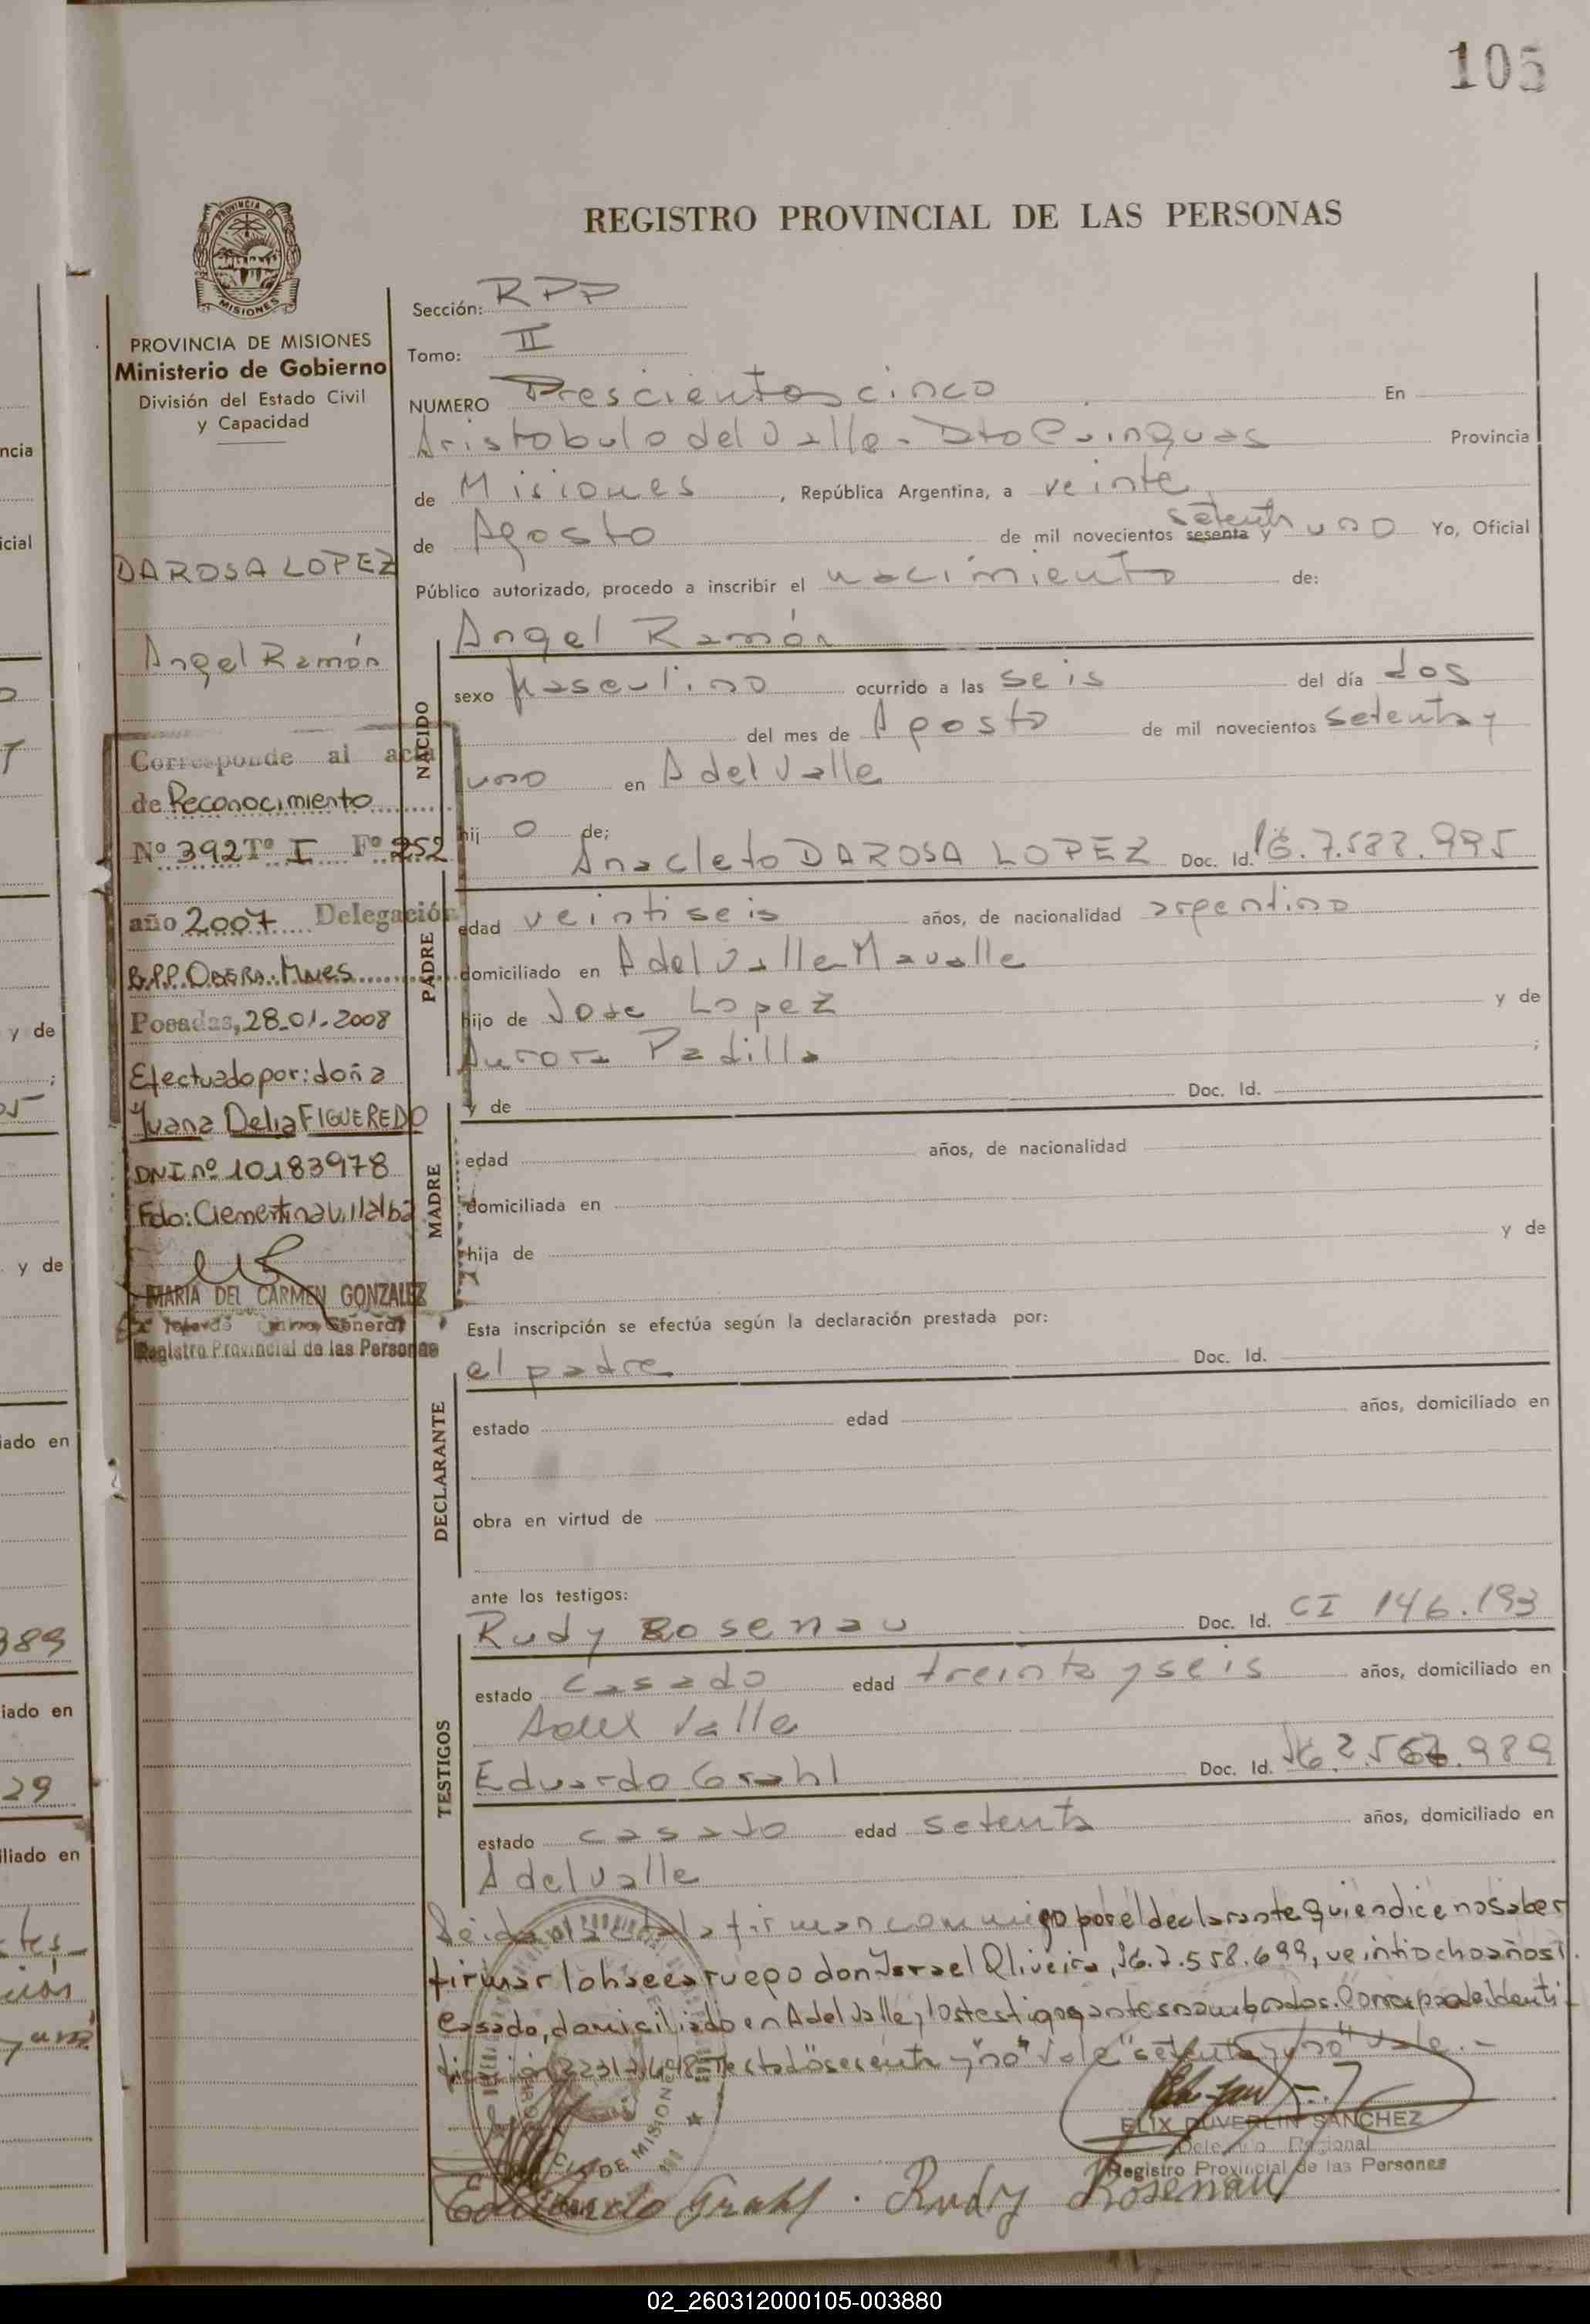 105
REGISTRO PROVINCIAL DE LAS PERSONAS
PROVINCIA DE MISIONES
PROVINCIA DE MISIONES
Ministerio de Gobierno
División del Estado Civil
y Capacidad
DAROSA LOPEZ
Angel Ramón
Corresponde al acta
de Reconocimiento
Nº 392 Tº I Fº 252
año 2007 Delegación
Posadas, 28-01-2008
Efectuado por: doña
Juana Delia FIGUEREDO
DNI nº 10183978
Fdo: Clementina Villalba
MARIA DEL CARMEN GONZALEZ
General
Registro Provincial de las Personas
Sección: RPP
Tomo: II
NUMERO Trescientos cinco En
Aristobulo del Valle - Dto Cainguas Provincia
de Misiones, República Argentina, a veinte
de Agosto de mil novecientos sesenta y setenta uno Yo, Oficial
Público autorizado, procedo a inscribir el nacimiento de:
NACIDO
Angel Ramón
sexo Masculino ocurrido a las seis del día dos
del mes de Agosto de mil novecientos setenta y
uno en A del Valle
hijo de;
PADRE
Anacleto DAROSA LOPEZ Doc. Id. 7.588.995
edad veintiseis años, de nacionalidad argentino
domiciliado en A del Valle
hijo de Jose Lopez y de
Aurora Padilla ;
MADRE
y de Doc. Id.
edad años, de nacionalidad
domiciliada en
hija de y de
Esta inscripción se efectúa según la declaración prestada por:
DECLARANTE
el padre Doc. Id.
estado edad años, domiciliado en
obra en virtud de
ante los testigos:
TESTIGOS
Rudy Rosenau Doc. Id. CI 146.193
estado casado edad treinta y seis años, domiciliado en
A del Valle
Eduardo Grahl Doc. Id. 989
estado casado edad setenta años, domiciliado en
A del Valle
Leida el acta la firman conmigo por el declarante quien dice no saber
firmar lo hace a ruego don Israel Oliveira, 7.558.699, veintiocho años
casado, domiciliado en A del Valle y los testigos antes nombrados.
Testado "sesenta" "no" Vale "setenta y uno" Vale.-
ELIX DUVERLIN SANCHEZ
Delegado Regional
Registro Provincial de las Personas
Eduardo Grahl . Rudy Rosenau
DE MISIONES
ncia
icial
y de
y de
389
iado en
29
iliado en
02_260312000105-003880